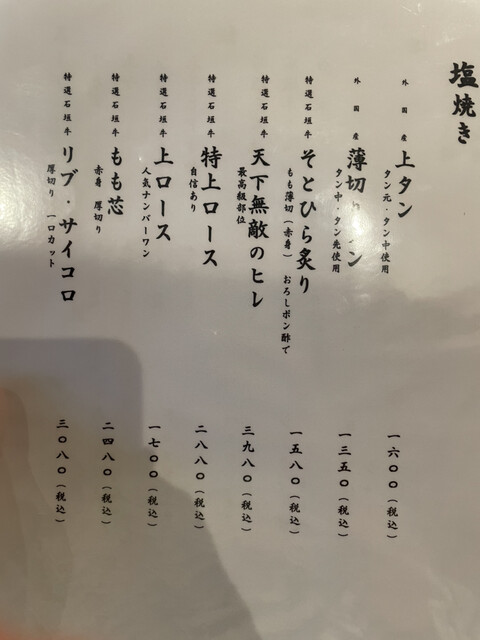 塩焼き
外国産
上タン
タン元・タン中使用
一六〇〇(税込)
外国産
薄切りタン
タン中・タン先使用
一三五〇(税込)
特選石垣牛
そとひら炙り
もも薄切(赤身) おろしポン酢で
一五八〇(税込)
特選石垣牛
天下無敵のヒレ
最高級部位
三九八〇(税込)
特選石垣牛
特上ロース
自信あり
二八八〇(税込)
特選石垣牛
上ロース
人気ナンバーワン
一七〇〇(税込)
特選石垣牛
もも芯
赤身 厚切り
二四八〇(税込)
特選石垣牛
リブ・サイコロ
厚切り 一口カット
三〇八〇(税込)